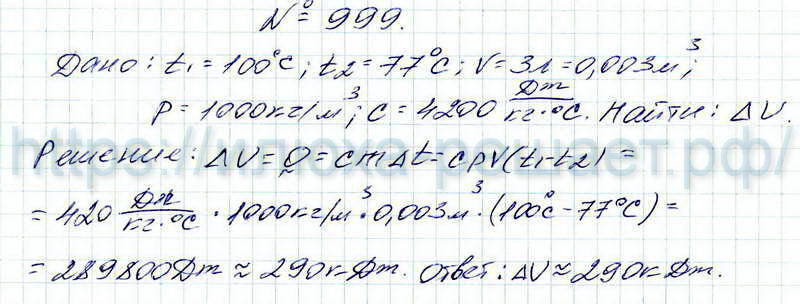 № 999.
Дано: t₁=100°C; t2=77°C; V=3л=0,003м³;
ρ=1000кг/м³; c=4200 Дж/кг·°C. Найти: ΔU.
Решение: ΔU=Q=cmΔt=cρV(t₁-t2)=
=420 Дж/кг·°C · 1000кг/м³·0,003м³·(100°C-77°C)=
=289800Дж≈290кДж. Ответ: ΔU≈290кДж.